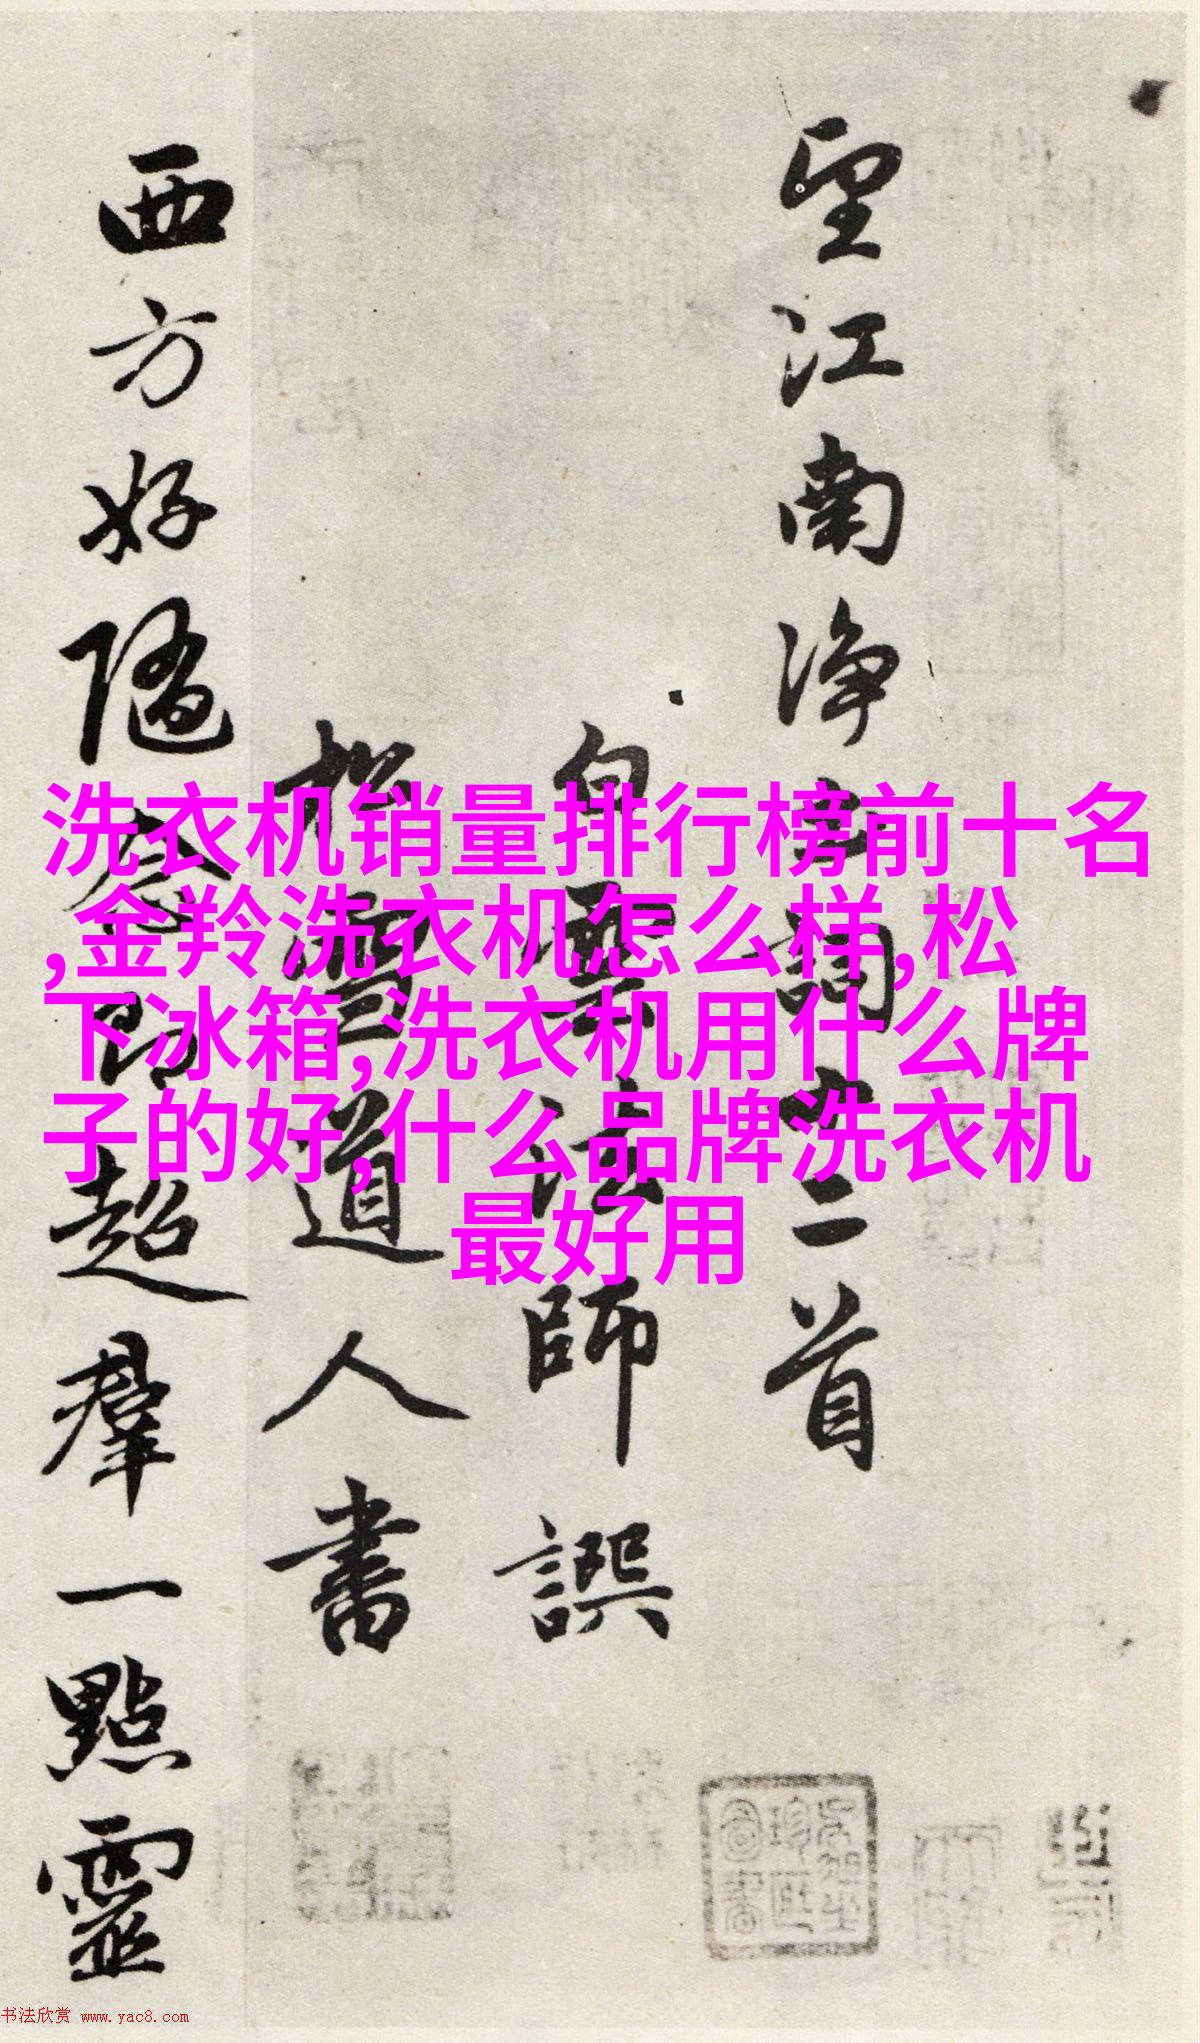 望江南淨土詞十二首
白雲法師譔
松雪道人書
西方好隨念即超羣一點靈
洗衣机销量排行榜前十名
,金羚洗衣机怎么样,松
下冰箱,洗衣机用什么牌
子的好,什么品牌洗衣机
最好用
书法欣赏 www.yac8.com